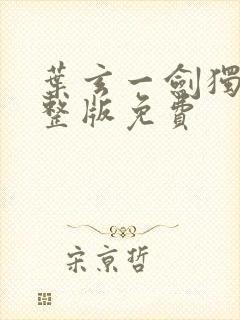 葉玄一劍獨
整版免費
宋京哲